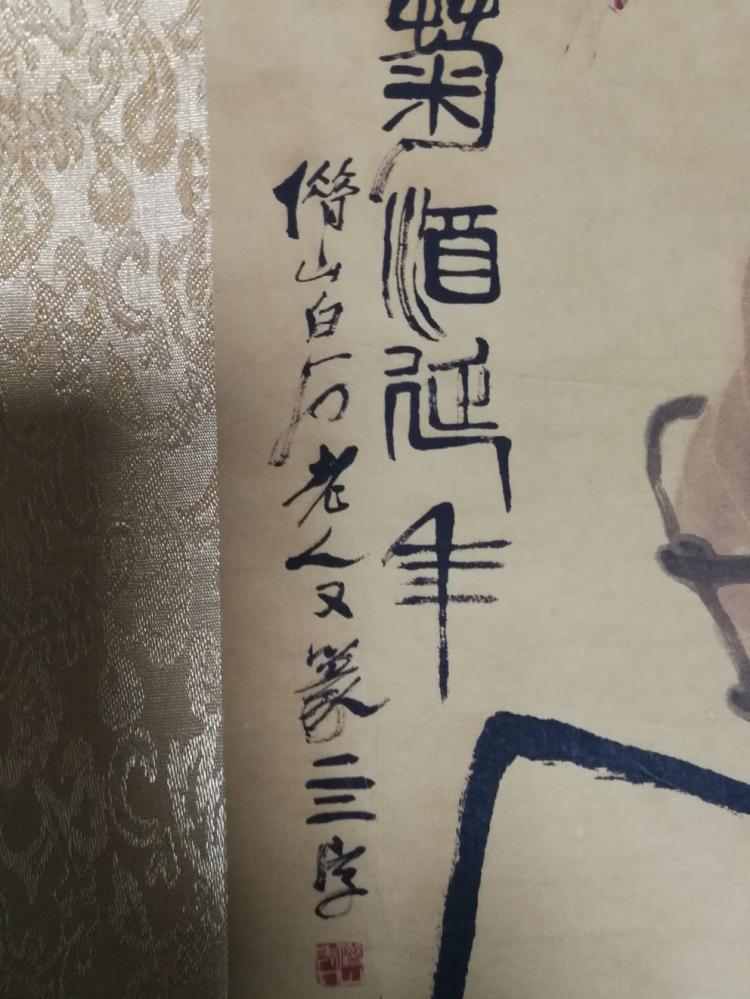 菊酒延年
借山白石老人又篆亖字